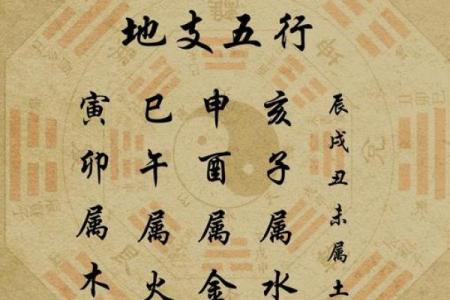 地支五行
寅卯属木
巳午属火
申酉属金
亥子属水
辰戌丑未属土